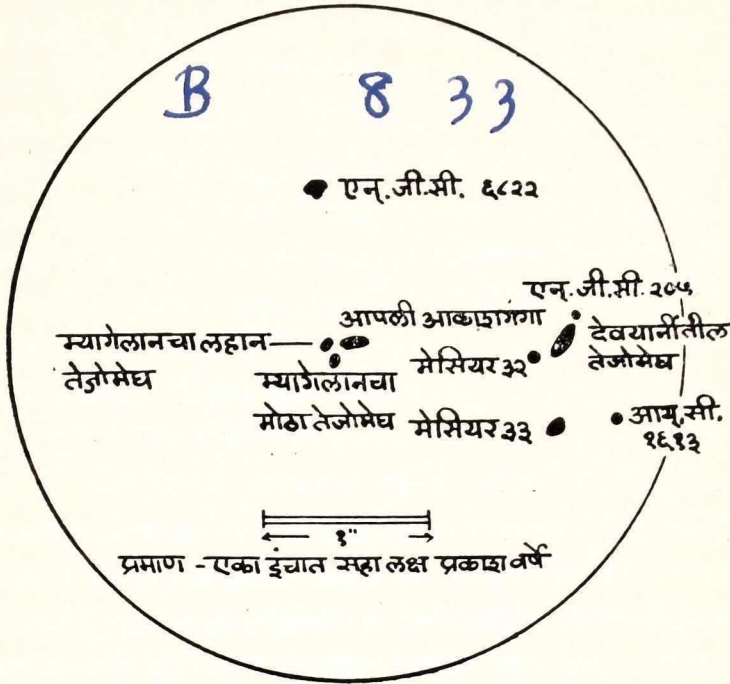 B 8 33
एन्.जी.सी. ६८२२
एन्.जी.सी. २०५
आपली आकाशगंगा
देवयानीतील
तेजोमेघ
म्यागेलानचा लहान
तेजोमेघ
मेसियर ३२
म्यागेलानचा
मोठा तेजोमेघ
मेसियर ३३
आय्.सी.
१६१३
१"
प्रमाण - एका इंचात सहा लक्ष प्रकाश वर्षे